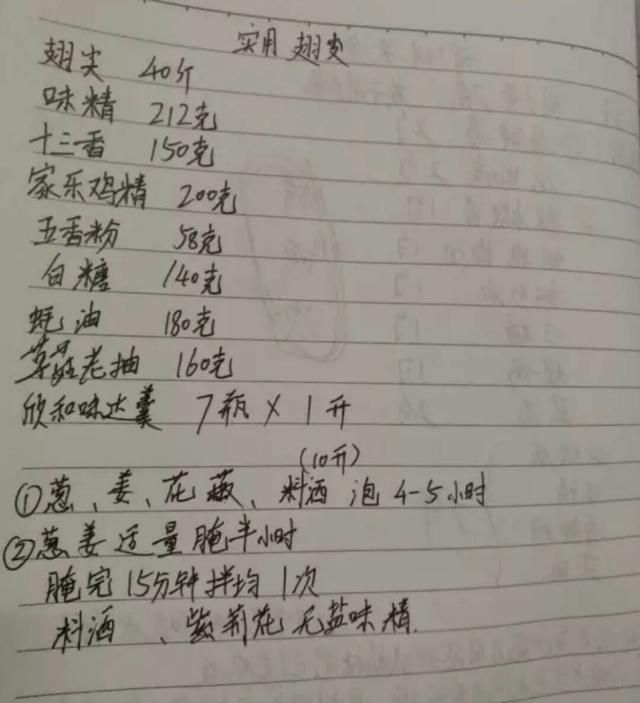 实用 翅尖
翅尖 40斤
味精 212克
十三香 150克
家乐鸡精 200克
五香粉 58克
白糖 140克
蚝油 180克
草菇老抽 160克
欣和味达美 7瓶 X 1升
(10升)
①葱、姜、花椒、料酒 泡 4-5小时
②葱姜适量腌半小时
腌完15分钟拌均1次
料酒、紫荆花无盐味精.